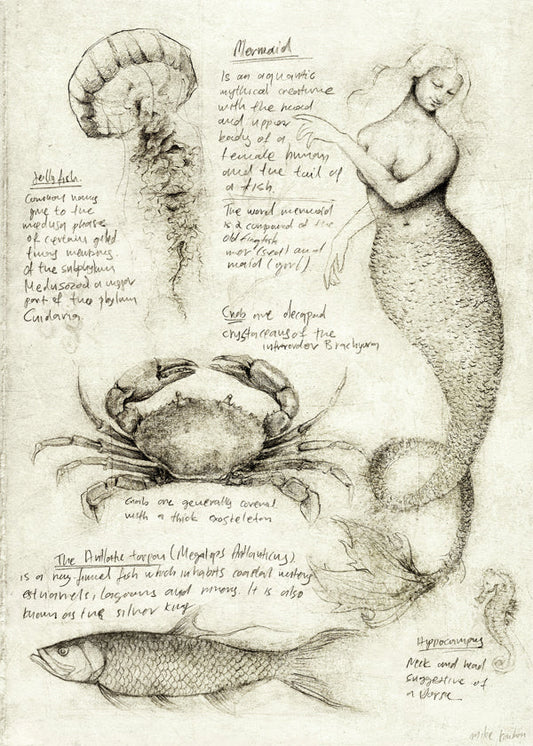 Mermaid
Is an aquantic
mythical creature
with the head
and upper
body of a
female human
and the tail of
a fish.
The word mermaid
is a compound of the
old English
mer (sea) and
maid (girl)
Jellyfish.
Common names
give to the
medusa phases
of certain
members
of the subphylum
Medusozoa a major
part of the phylum
Cnidaria
Crab are decapod
crustaceans of the
infraorder Brachyura
Crab are generally covered
with a thick exoskeleton
The Atlantic tarpon (Megalops Atlanticus)
is a ray-finned fish which inhabits coastal waters
estuaries, lagoons and rivers. It is also
known as the silver king
Hippocampus
Neck and head
suggestive of
a horse
mike